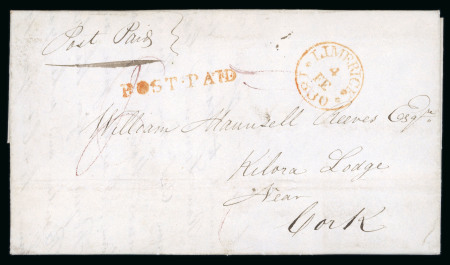 Post Paid
POST-PAID
LIMERICK
4
FE
1840
William Maunsell Reeves Esqr.
Kilora Lodge
Near
Cork